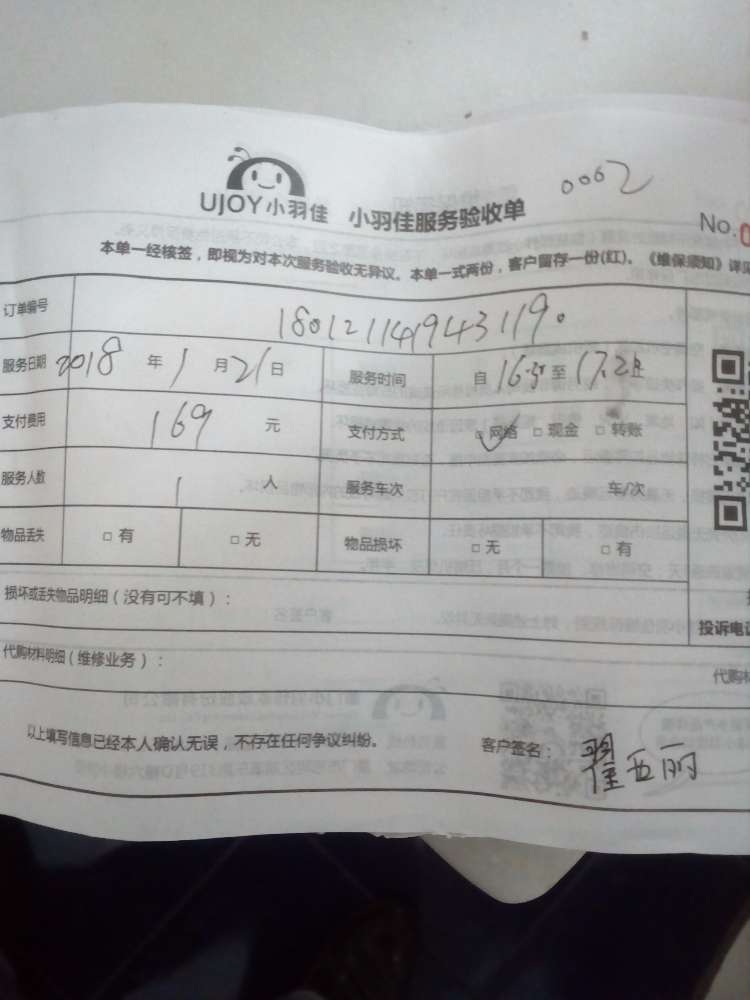 0062
UJOY小羽佳 小羽佳服务验收单
No.0
本单一经核签，即视为对本次服务验收无异议。本单一式两份，客户留存一份(红)。《维保须知》详见
订单编号 180121141943119。
服务日期 2018 年 1 月 21 日 服务时间 自 16:31 至 17:21
支付费用 169 元 支付方式 ☑网络 □现金 □转账
服务人数 1 人 服务车次 车/次
物品丢失 □有 □无 物品损坏 □无 □有
损坏或丢失物品明细（没有可不填）：
投诉电话
代购材料明细（维修业务）： 代购材
以上填写信息已经本人确认无误，不存在任何争议纠纷。 客户签名：翟西丽